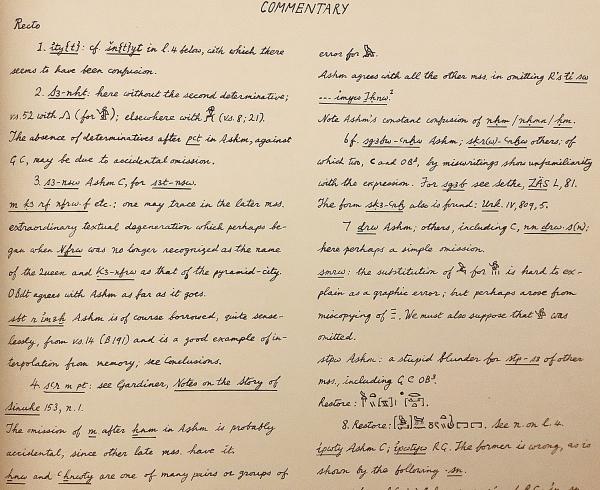 COMMENTARY
Recto
1. ity{t}: cf. in{t}yt in l.4 below, with which there
seems to have been confusion.
2. S3-nht: here without the second determinative;
vs.52 with (for ); elsewhere with (vs.8;21).
The absence of determinatives after pct in Ashm, against
G C, may be due to accidental omission.
3. s3-nsw Ashm C, for s3t-nsw.
m k3 rf nfrw.f etc.; one may trace in the later mss.
extraordinary textual degeneration which perhaps be-
gan when Nfrw was no longer recognized as the name
of the Queen and K3-nfrw as that of the pyramid-city.
OBdt agrees with Ashm as far as it goes.
sbt r im3h Ashm is of course borrowed, quite sense-
lessly, from vs.14 (B191) and is a good example of in-
terpolation from memory; see Conclusions.
4. scr m pt: see Gardiner, Notes on the Story of
Sinuhe 153, n.1.
The omission of m after ham in Ashm is probably
accidental, since other late mss. have it.
hnw and are one of many pairs or groups of
error for
Ashm agrees with all the other mss. in omitting R's ti sw
--- imyw Thnw.²
Note Ashm's constant confusion of nhm / nhmn / hm.
6f. sgsbw-cnhw Ashm; skr(w)-cnhw others; of
which two, C and OB³, by miswritings show unfamiliarity
with the expression. For sg3b see Sethe, ZÄS L, 81.
The form sk3-cnh also is found: Urk. IV, 809, 5.
7 drw Ashm; others, including C, nn drw.s(n);
here perhaps a simple omission.
smrw: the substitution of for is hard to ex-
plain as a graphic error; but perhaps arose from
miscopying of . We must also suppose that was
omitted.
stpw Ashm: a stupid blunder for stp-s3 of other
mss., including G C OB³.
Restore:
8. Restore: . See n. on l.4.
ipwty Ashm C; ipwtyw R G. The former is wrong, as is
shown by the following -sn.